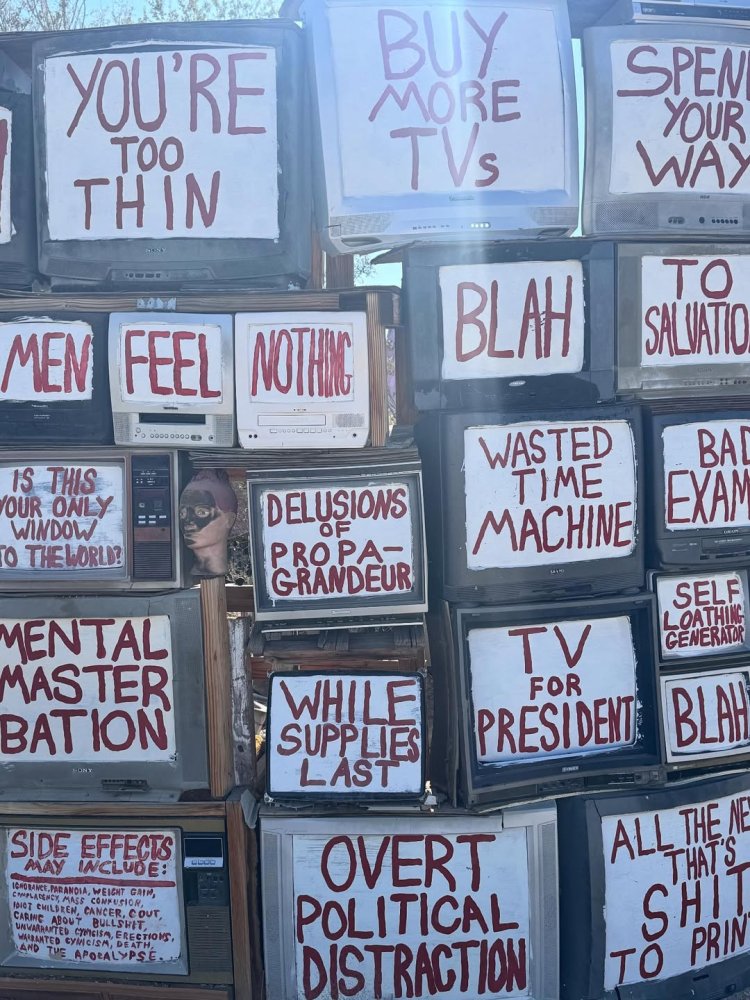 YOU'RE
TOO
THIN
BUY
MORE
TVs
SPEND
YOUR
WAY
MEN
FEEL
NOTHING
BLAH
TO
SALVATION
IS THIS
YOUR ONLY
WINDOW
TO THE WORLD?
DELUSIONS
OF
PROPA-
GRANDEUR
WASTED
TIME
MACHINE
BAD
EXAM
SELF
LOATHING
GENERATOR
MENTAL
MASTER
BATION
SONY
WHILE
SUPPLIES
LAST
TV
FOR
PRESIDENT
BLAH
SIDE EFFECTS
MAY INCLUDE:
IGNORANCE, PARANOIA, WEIGHT GAIN,
COMPLACENCY, MASS CONFUSION,
IDIOT CHILDREN, CANCER, GOUT,
CARING ABOUT BULLSHIT,
UNWARRANTED CYNICISM, ERECTIONS,
WARRANTED CYNICISM, DEATH,
AND THE APOCALYPSE.
OVERT
POLITICAL
DISTRACTION
ALL THE NE
THAT'S
SHIT
TO PRIN